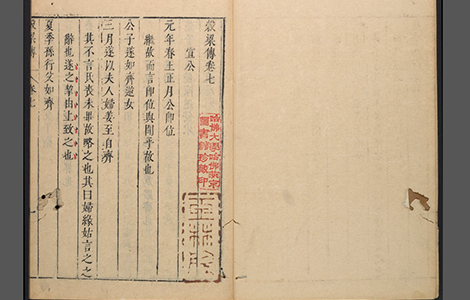 哈佛大學哈佛燕京
圖書館珍藏印
穀梁傳卷七
宣公
元年春王正月公卽位
繼故而言卽位與聞乎故也
公子遂如齊逆女
三月遂以夫人婦姜至自齊
其不言氏喪未畢故略之也其曰婦緣姑言之之
辭也遂之挈由上致之也
夏季孫行父如齊
穀梁傳 卷七